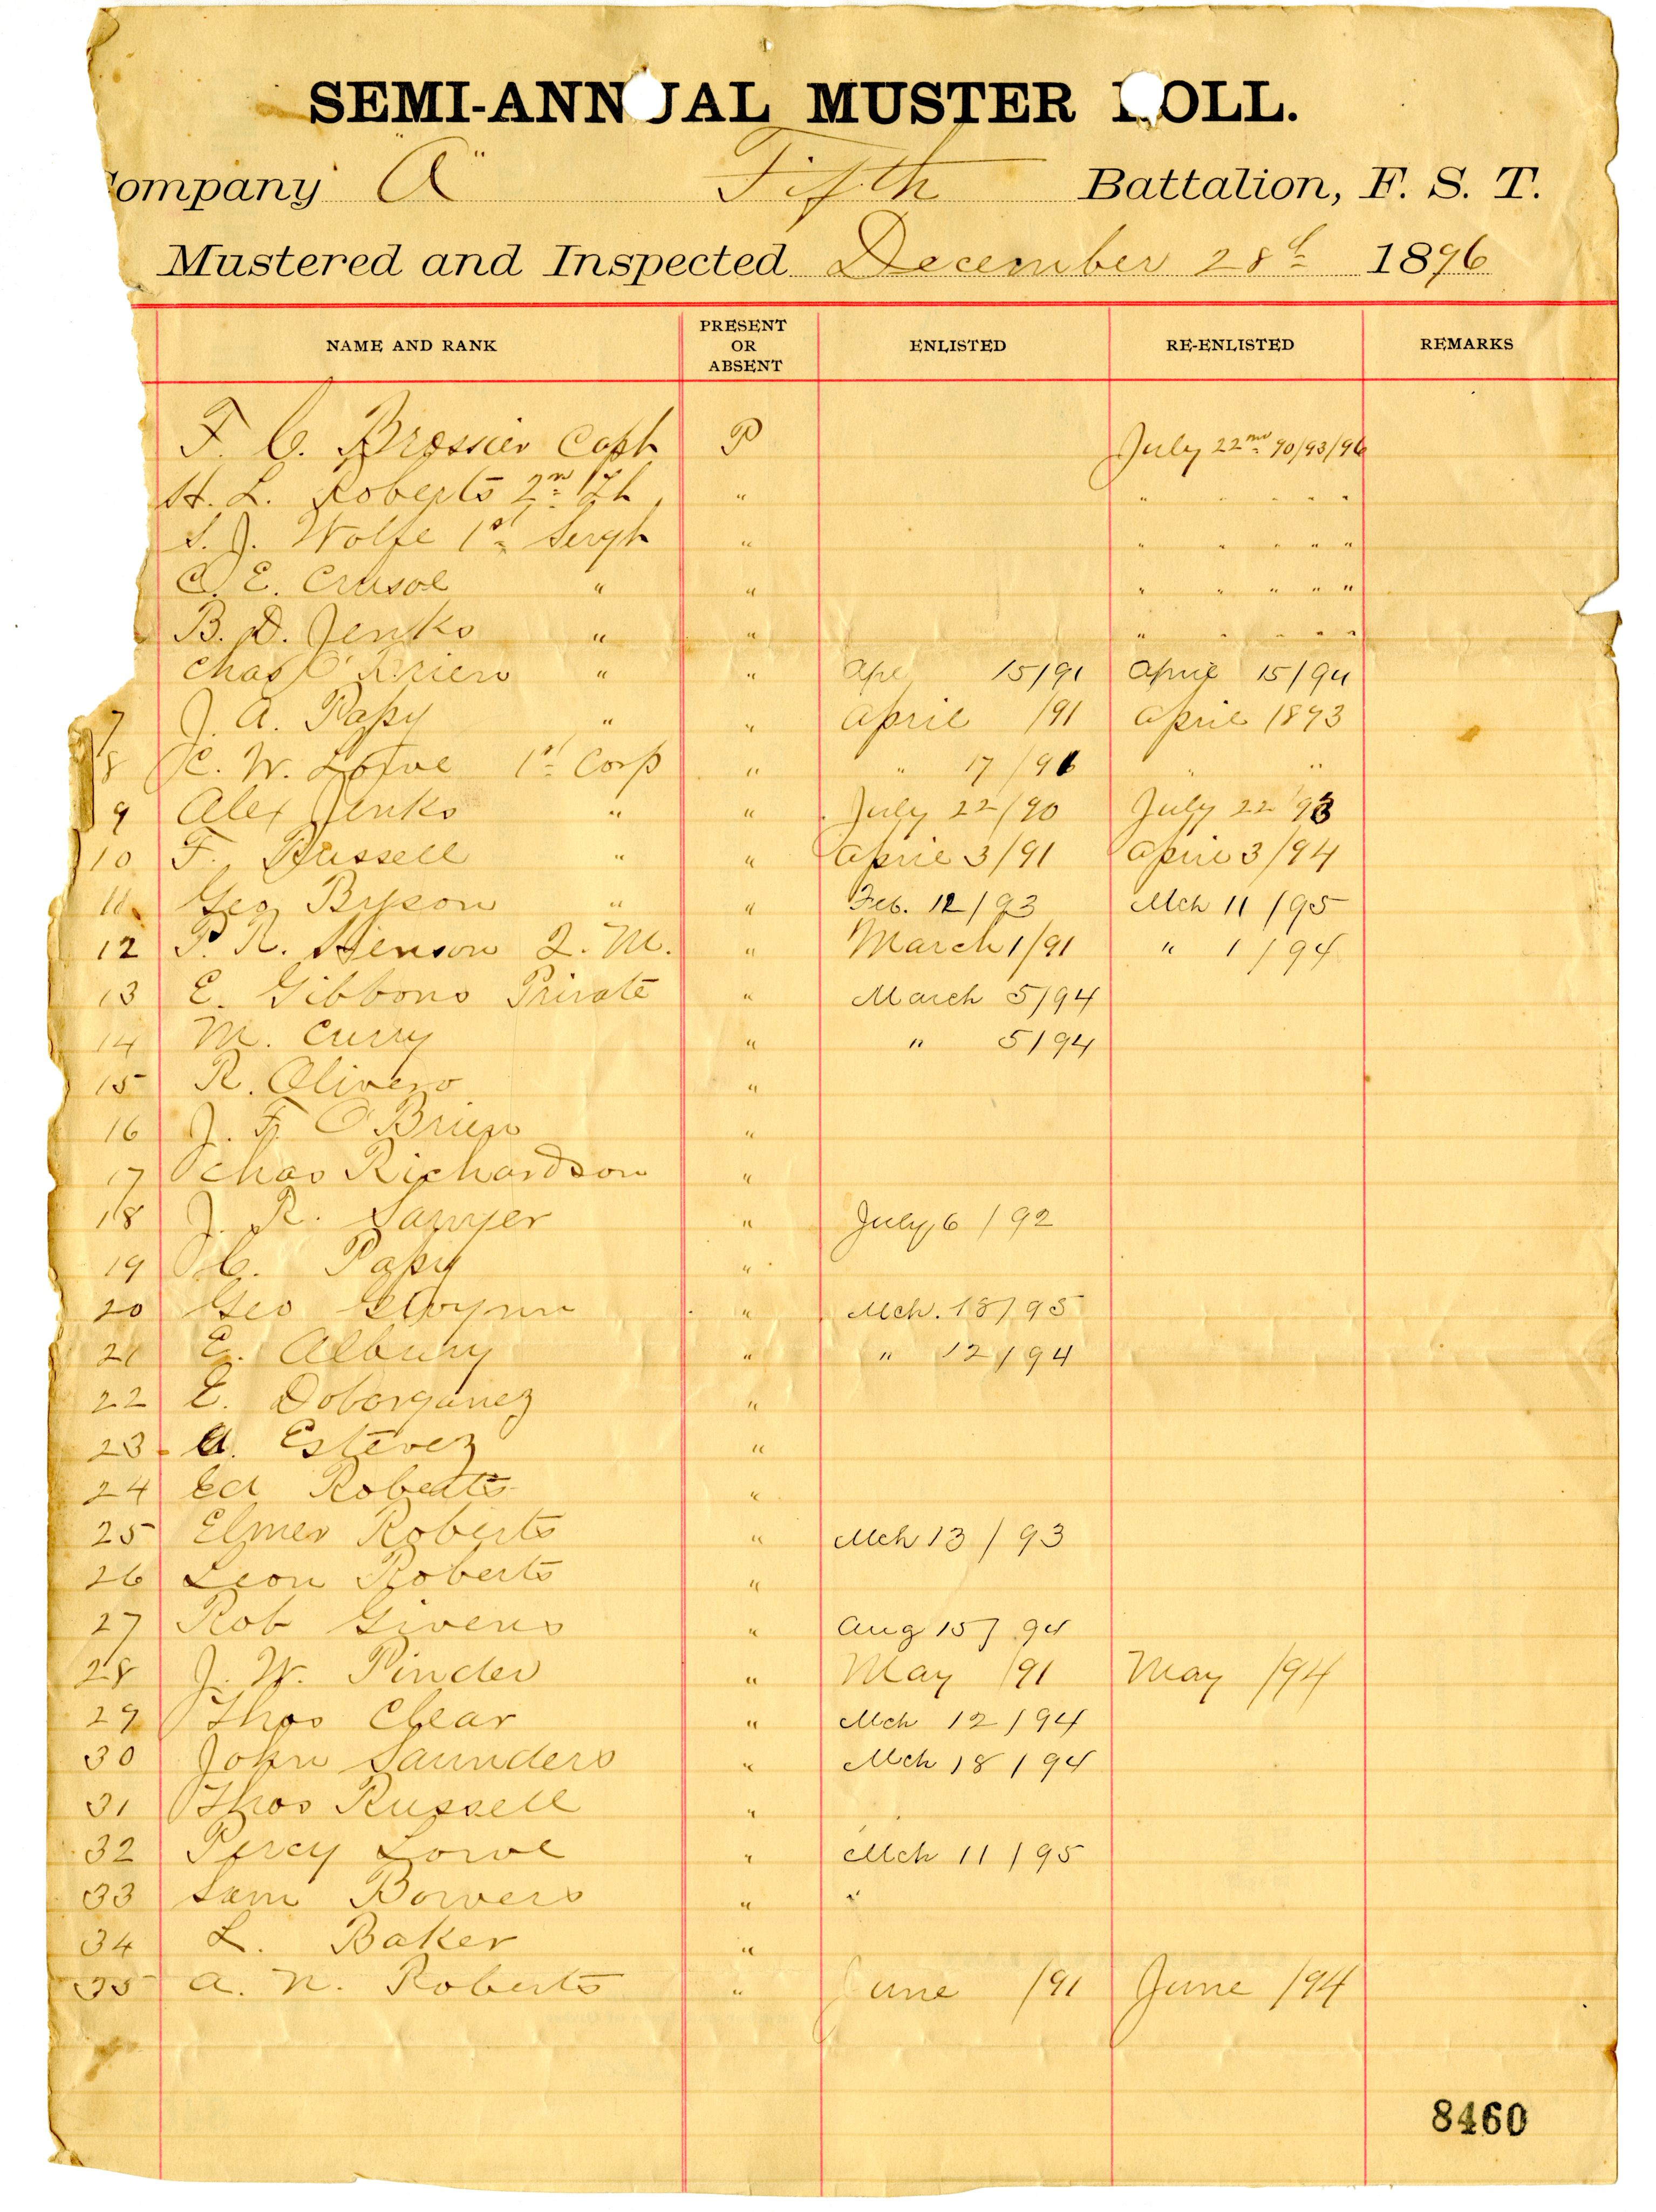 SEMI-ANNUAL MUSTER ROLL.
Company "A" Fifth Battalion, F. S. T.
Mustered and Inspected December 28th 1896
NAME AND RANK PRESENT OR ABSENT ENLISTED RE-ENLISTED REMARKS
F. C. Brossier Capt P July 22nd 90/93/96
H. L. Roberts 2nd Lt " " " " " "
S. J. Wolfe 1st Sergt " " " " " "
C. E. Crusoe " " " " " " "
B. D. Jenks " " " " " " "
Chas O'Brien " " Apl 15/91 April 15/94
7 J. A. Papy " " April /91 April 1893
8 C. W. Lowe 1st Corp " " 17/96 " "
9 Alex Jenks " " July 22/90 July 22 93
10 F. Russell " " April 3/91 April 3/94
11 Geo Bryson " " Feb. 12/93 Mch 11/95
12 P. R. Henson Q. M. " March 1/91 " 1/94
13 E. Gibbons Private " March 5/94
14 M. Curry " " 5/94
15 R. Olivero "
16 J. F. O'Brien "
17 Chas Richardson "
18 J. R. Sawyer " July 6/92
19 C. Papy "
20 Geo Gwynn " Mch. 18/95
21 E. Albury " " 12/94
22 E. Doborganez "
23 A. Estevez "
24 Ed Roberts "
25 Elmer Roberts " Mch 13/93
26 Leon Roberts "
27 Rob Givens " Aug 15/94
28 J. W. Pinder " May /91 May /94
29 Thos Clear " Mch 12/94
30 John Saunders " Mch 18/94
31 Thos Russell "
32 Percy Lowe " Mch 11/95
33 Sam Bowers " "
34 L. Baker "
35 A. N. Roberts " June /91 June /94
8460